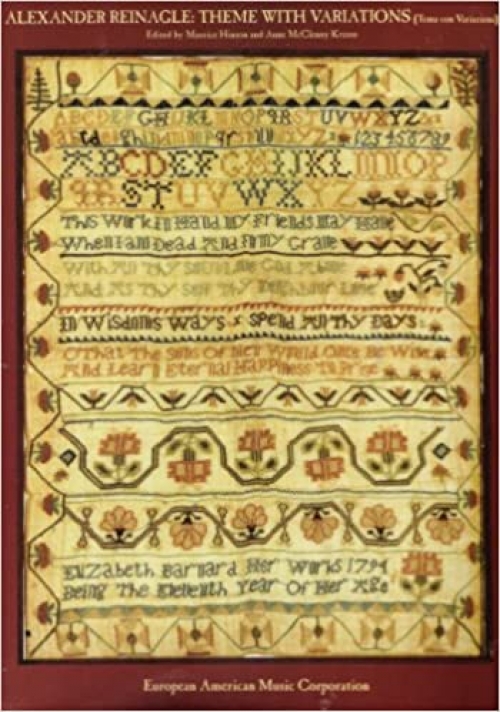 ALEXANDER REINAGLE: THEME WITH VARIATIONS (Tema con Variazioni)
Edited by Maurice Hinson and Anne McClenny Krauss
ABCDEFGHIJKLMNOPQRSTUVWXYZ
123456789
ABCDEFGHIJKLMNOP
QRSTUVWXYZ
This Work in Hand my Friends May Have
When I am Dead And In my Grave
With All Thy Soul Love God Above
And As Thy Self Thy Neighbour Love
In Wisdoms Ways Spend All Thy Days
O That The Sons Of Men Would Once Be Wise
And Learn Eternal Happiness To Prise
Elizabeth Barnard Her Work 1794
Being The Eleventh Year Of Her Age
European American Music Corporation